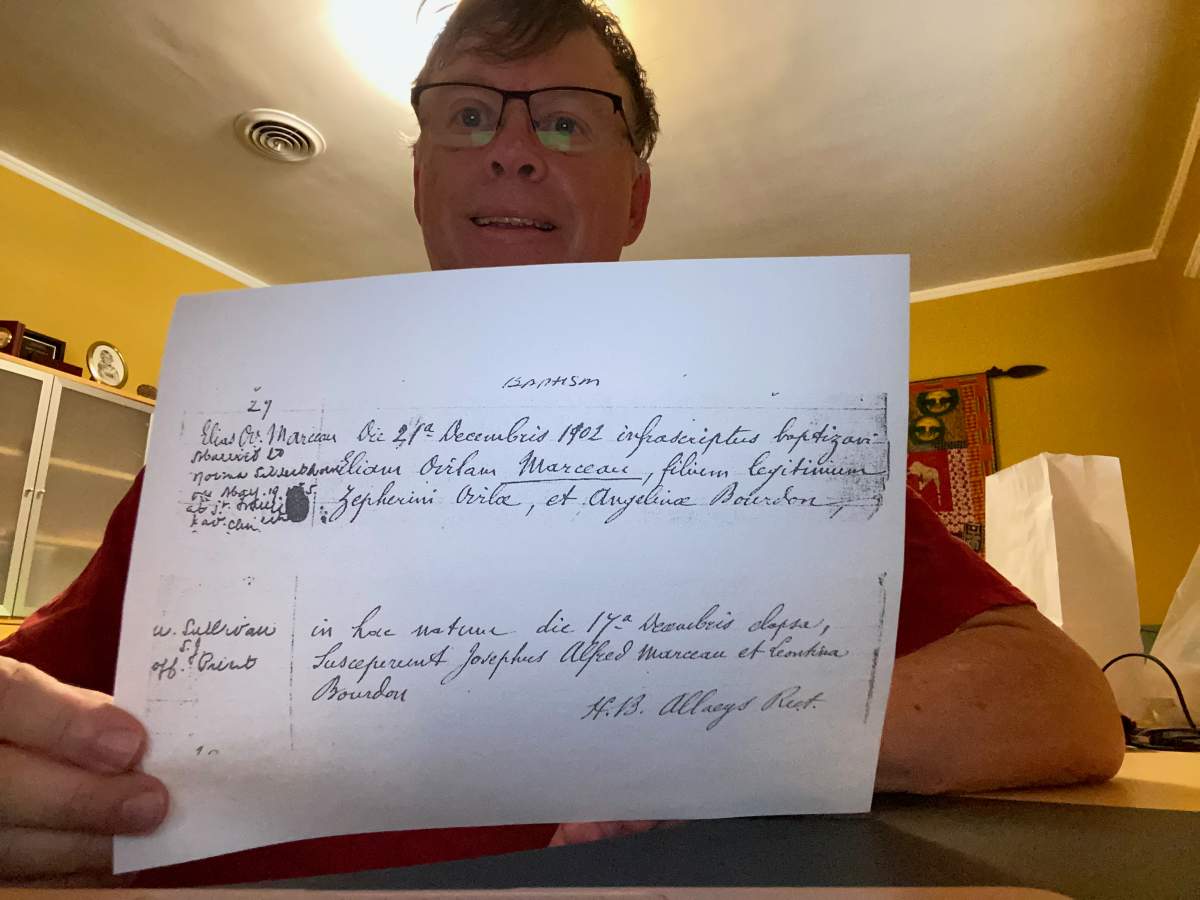 BAPTISM
29
Elias Ov. Marceau
Married to
Norma
on May 19
at St.
Die 21a Decembris 1902 infrascriptus baptizavi
Eliam Ovilam Marceau, filium legitimum
Zepherini Ovilæ, et Angelinæ Bourdon,
W. Sullivan
S.J.
off. Priest
in hac natum die 17a Decembris elapsa,
Susceperunt Josephus Alfred Marceau et Leontina
Bourdon
H.B. Allaeys Rect.